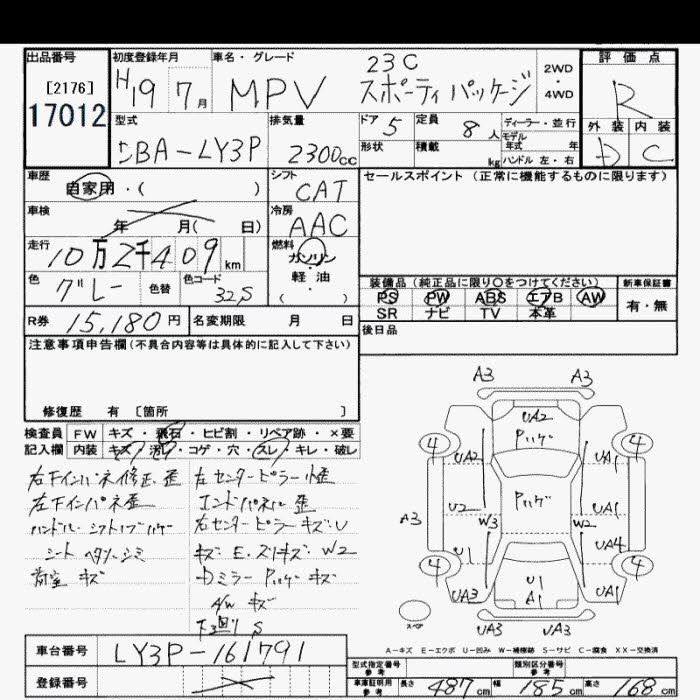 出品番号
[2176]
17012
初度登録年月
H19 7月
車名・グレード
MPV 23C
スポーティパッケージ
2WD
・
4WD
評価点
R
外装 内装
D C
型式
DBA-LY3P
排気量
2300cc
ドア 5
形状
定員 8人
積載 kg
ディーラー・並行
モデル
年式 年
ハンドル 左・右
車歴
自家用・( )
シフト
CAT
セールスポイント (正常に機能するものに限ります)
車検
年 月( 日)
冷房
AAC
走行
10万2千409km
燃料
ガソリン
軽・油
( )
色
グレー
色替
色コード
32S
装備品 (純正品に限り○をつけてください)
PS PW ABS エアB AW
SR ナビ TV 本革
新車保証書
有・無
R券 15,180円
名変期限 月 日
後日品
注意事項申告欄 (不具合内容等は具体的に記入して下さい)
修復歴 有 [箇所 ]
検査員 FW キズ・飛石・ヒビ割・リペア跡・×要
記入欄 内装 キズ・汚レ・コゲ・穴・スレ・キレ・破レ
右下インパネ修正、歪
左下インパネ歪
ハンドル・シフトノブハゲ
シートヘタリ・シミ
荷室 キズ
左センターピラー小歪
エンドパネル 歪
右センターピラー キズ・U
キズ E・スリキズ・W2
Dミラー Pハゲ キズ
A/W キズ
下回り S
A3 A3
UA2
Pハゲ
4 4
UA2 UA1
Pハゲ
A3
U2 UA1
W3 W2
U1 UA4
4 4
UA3 UA1
U1
A1
スペア
UA3 UA3
A-キズ E-エクボ U-凹み W-補修跡 S-サビ C-腐食 XX-交換済
車台番号 LY3P-161791
登録番号
型式指定番号
参考
類別区分番号
参考
車庫証明用
参考
長さ 487cm 幅 185cm 高さ 168cm